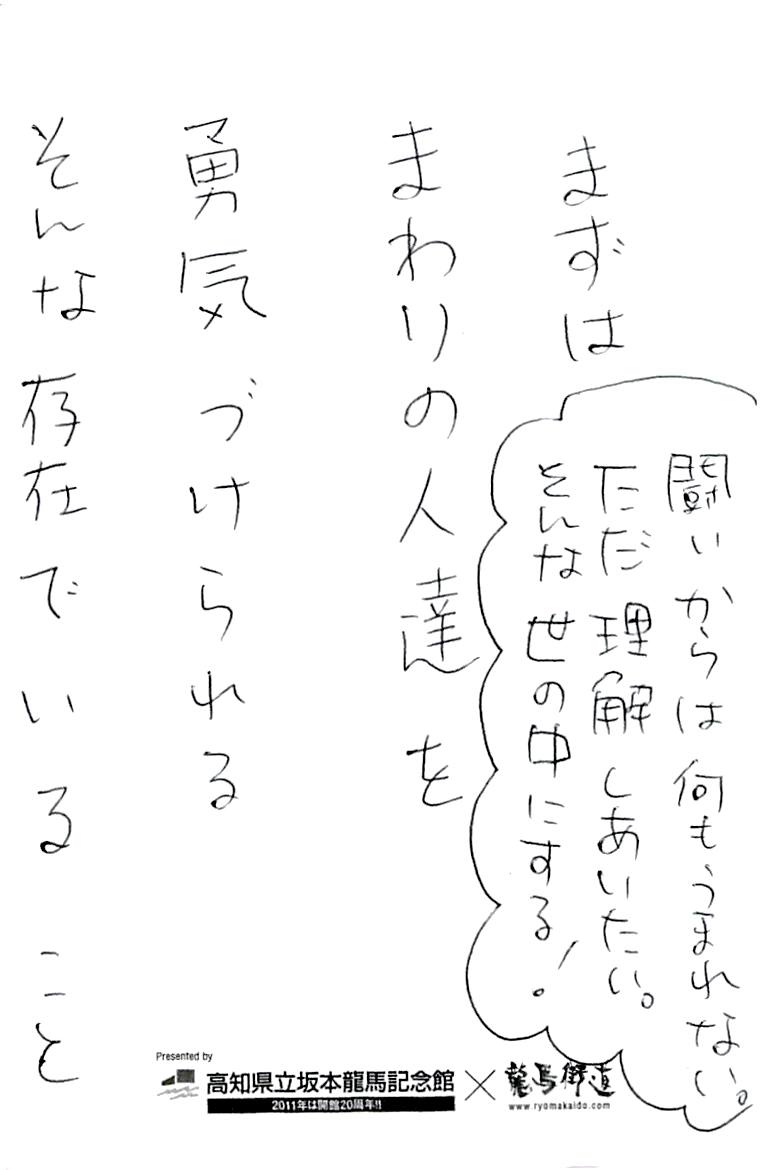 まずは
まわりの人達を
勇気づけられる
そんな存在でいること
闘いからは何もうまれない。
ただ理解しあいたい。
そんな世の中にする!
Presented by
高知県立坂本龍馬記念館
2011年は開館20周年!!
×
龍馬街道
www.ryomakaido.com